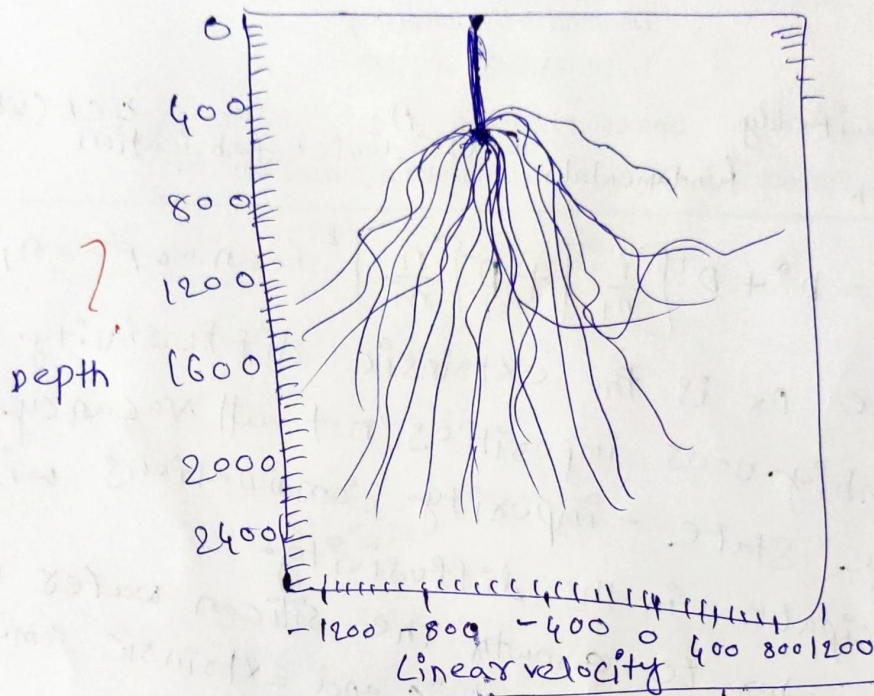 0
400
800
1200
1600
Depth
2000
2400
-1200 -800 -400 0 400 800 1200
Linear velocity
?